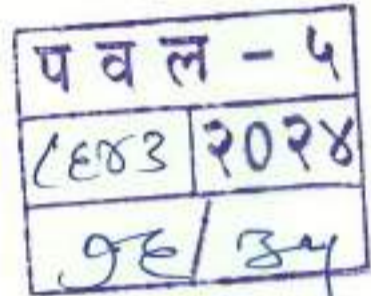 प व ल - ५
८६४३ २०२४
१६/३५